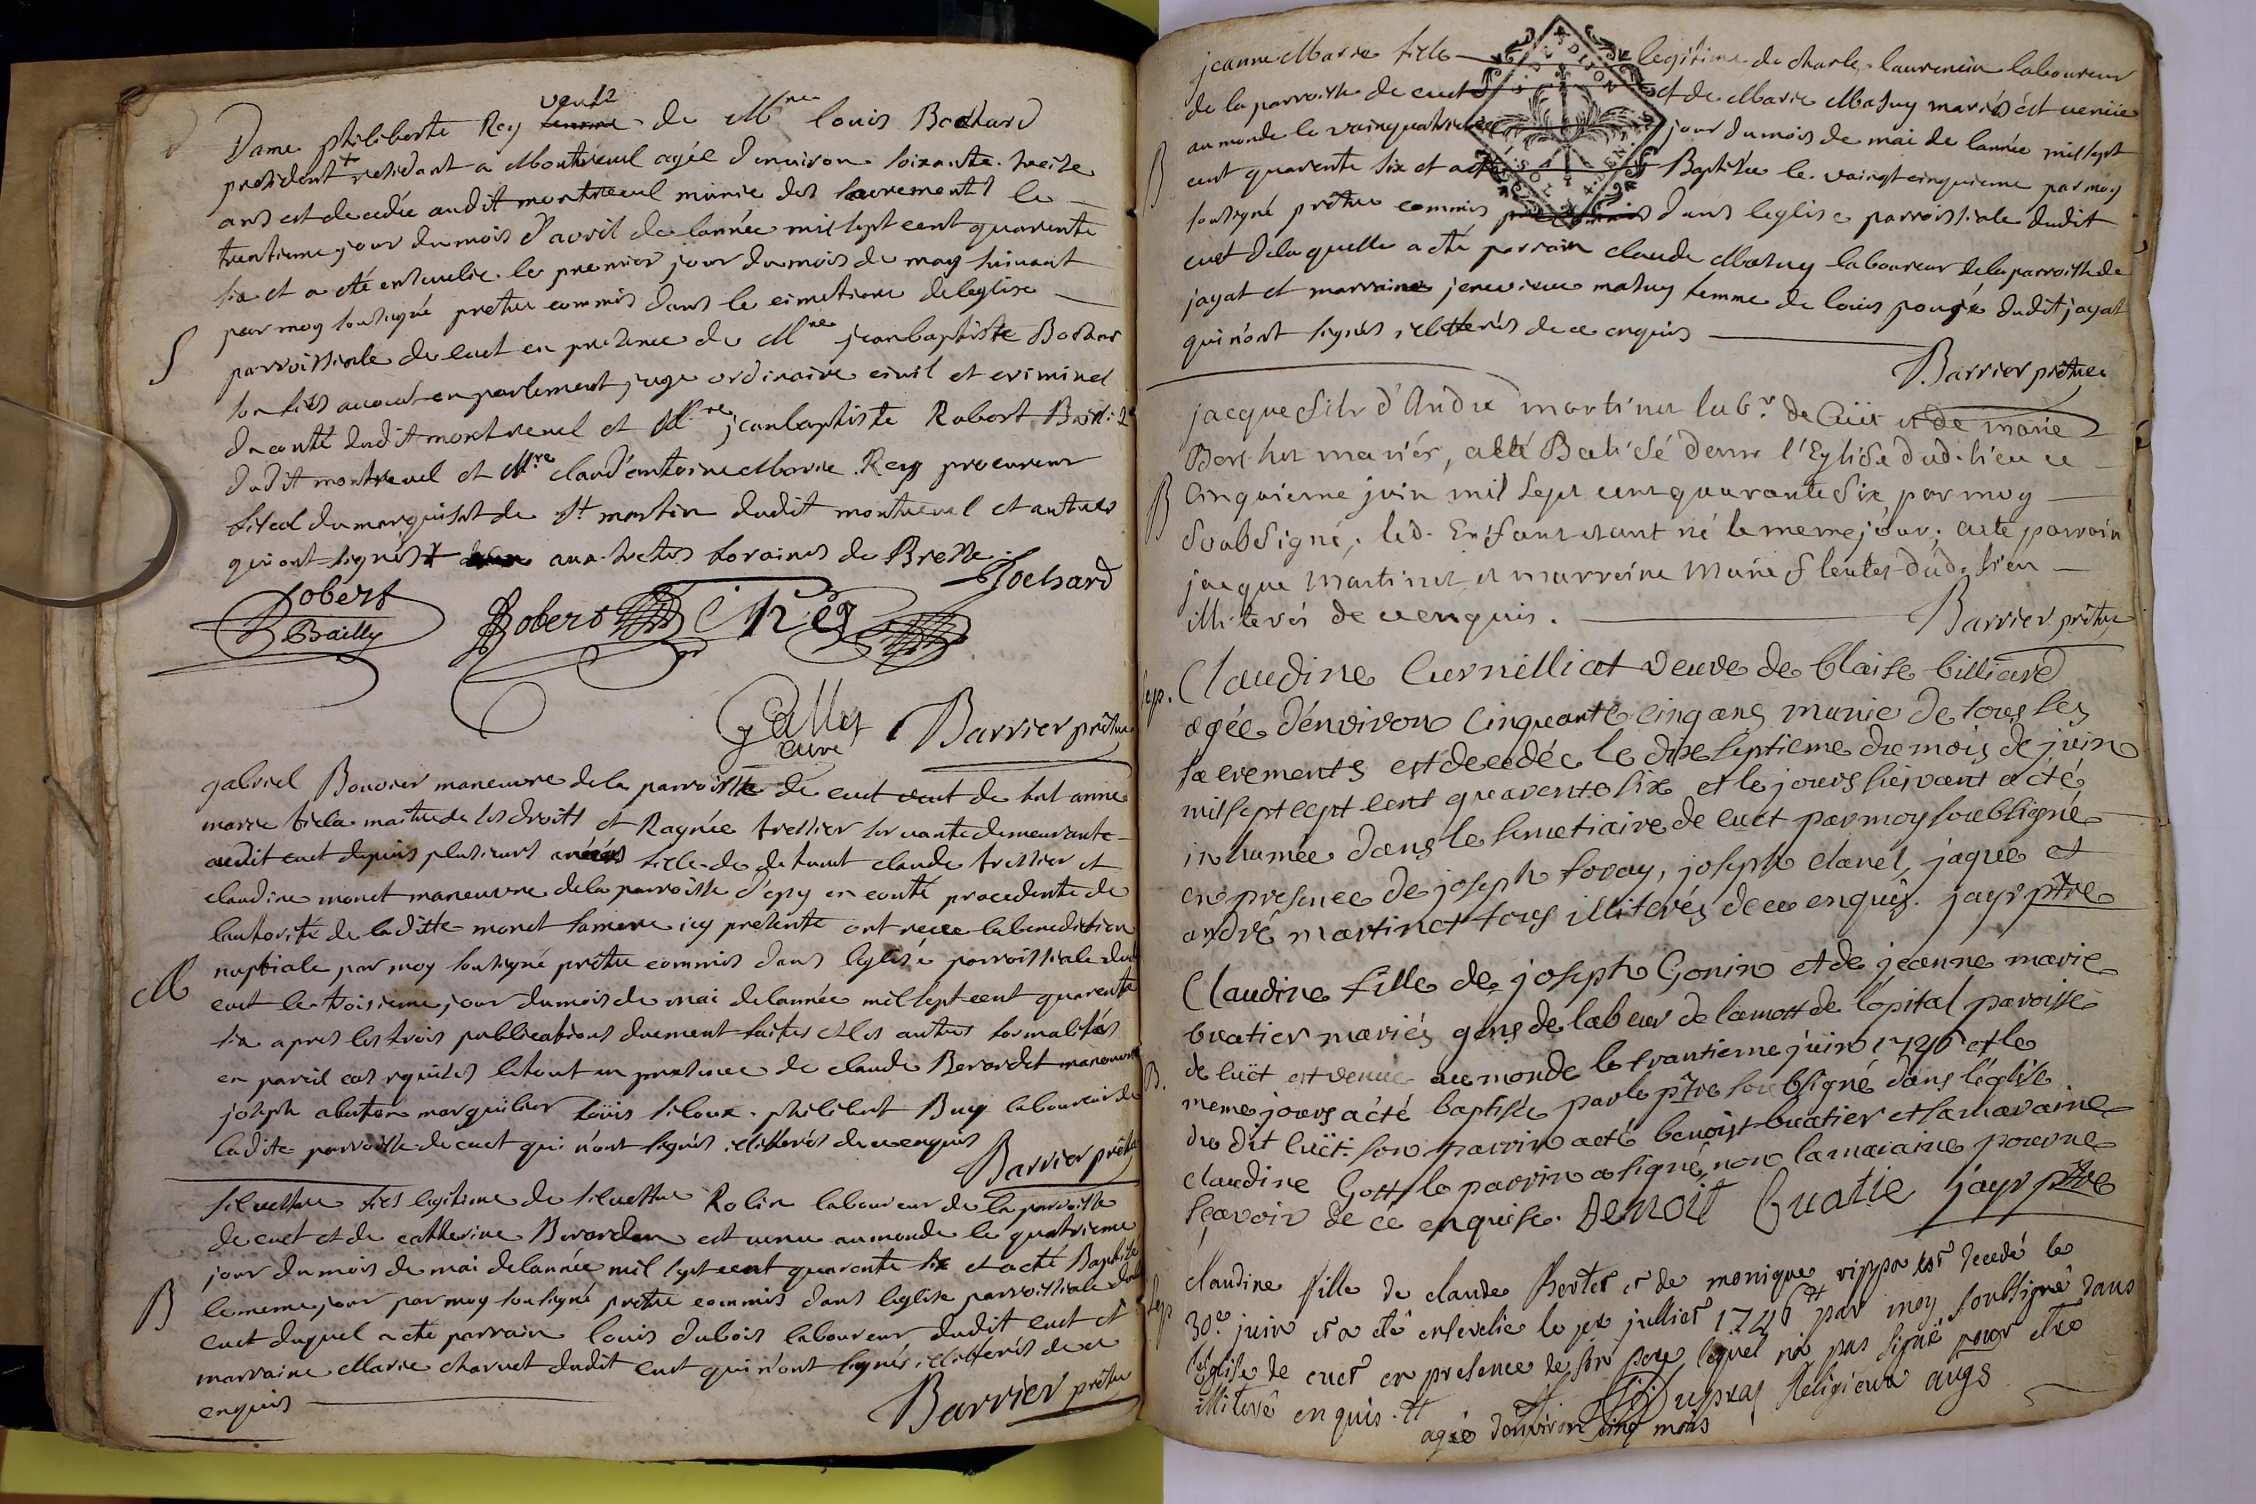 veuve
Dame philiberte Rey femme de Mre louis Bochard
president + residant a Montreuel agée d'environ soixante treize
ans est decedée audit montreuel munie des sacrements le
trentieme jour du mois d'avril de lannée mil sept cent quarente
six et a eté ensevelie le premier jour du mois de may suivant
S
par moy soussigné prêtre commis dans le cimetiere de leglise
parroissiale de cuet en presence de Mre jeanbaptiste Bochard
son fils avocat en parlement juge ordinaire civil et criminel
du conté dudit montreuel et Mre jeanbaptiste Robert Bailli
dudit montreuel et Mre claud'antoine Marie Rey procureur
fiscal du marquisat de st martin dudit montreuel et autres
qui ont signés + aux traites foraines de Bresse
Bochard
Robert
Bailly
Robert
Rey
Gallet
curé
Barrier prêtre
gabriel Bouvier maneuvre de la parroisse de cuet veuf de
marie maitre de ses droits et Ragnée tressier servante demeurante
audit cuet depuis plusieurs années fille de defunt claude tressier et
claudine monet maneuvre de la parroisse d'épy en conté procedente de
lauthorité de laditte monet sa mere icy presente ont reçue la benediction
nuptiale par moy soussigné prêtre commis dans leglise parroissiale dud
M
cuet le troisieme jour du mois de mai de lannée mil sept cent quarente
six apres les trois publications duement faites et les autres formalités
en pareil cas requises le tout en presence de claude Berardet maneuvre
joseph marguilier loüis philibert Buy laboureur de
ladite parroisse de cuet qui n'ont signés illitterés de ce enquis
Barrier prêtre
silvestre fils legitime de silvestre Rolin laboureur de la parroisse
de cuet et de catherine est venu au monde le quatrieme
jour du mois de mai de lannée mil sept cent quarente six et a eté Baptisé
B
le meme jour par moy soussigné prêtre commis dans leglise parroissiale dud
cuet duquel a eté parrain louis dubois laboureur dudit cuet et
marraine Marie charnet dudit cuet qui n'ont signés illitterés de ce
enquis
Barrier prêtre
jeanne Marie fille legitime de charle laurencin laboureur
de la parroisse de cuet et de Marie Mathuy mariés est venüe
au monde le vaingquatrieme jour du mois de mai de lannée mil sept
B
cent quarente six et a eté Baptisée le vaingt cinquieme par moy
soussigné prêtre commis dans leglise parroissiale dudit
cuet de laquelle a eté parrain claude Mathuy laboureur de la parroisse de
jayat et marraine jenevieve mathuy femme de louis dudit jayat
qui n'ont signés illitterés de ce enquis
Barrier prêtre
jacque fils d'André martinet labr. de Cüet et de marie
Berthet mariés, a eté Batisé dans l'Eglise dud. lieu ce
B
Cinquieme juin mil sept cent quarante six par moy
Soubsigné, led. Enfant etant né le meme jour; a eté parrain
jacque Martinet et marreine Marie dud. lieu
illiterés de ce enquis.
Barrier prêtre
Sep.
Claudine Curnilliat veuve de blaise billiard
agée dénviron cinquante cinq ans munie de tous les
sacrements est decedée le dixseptieme du mois de juin
mil sept sept cent quarente six et le jours suivant a été
inhumée dans le simetiaire de cuet par moy soubsigné
en presence de joseph foray, joseph clanel, jaque et
andré martinet tous illiterés de ce enquis. jayr ptre
Claudine fille de joseph Gonin et de jeanne marie
buatier mariés gens de labeur de lamott de l'opital paroisse
B.
de cüet est venue au monde le trantieme jüin 1746 et le
meme jours a été baptisée par le ptre soubsigné dans l'église
du dit cüet. son parrin a eté benoist buatier et sa maraine
claudine Gott le parrin a signé, non la maraine pour ne
sçavoir de ce enquise. Benoit Buatie jayr ptre
Sep
claudine fille de claude Bertet et de monique rippa est decedé le
30e juin et a été ensevelie le 1er julliet 1746 par moy soubsigné dans
l'église de cuet en presence de son pere lequel n'a pas signé pour etre
illiteré enquis. Dupras Religieux augs
agée d'environ cinq mois